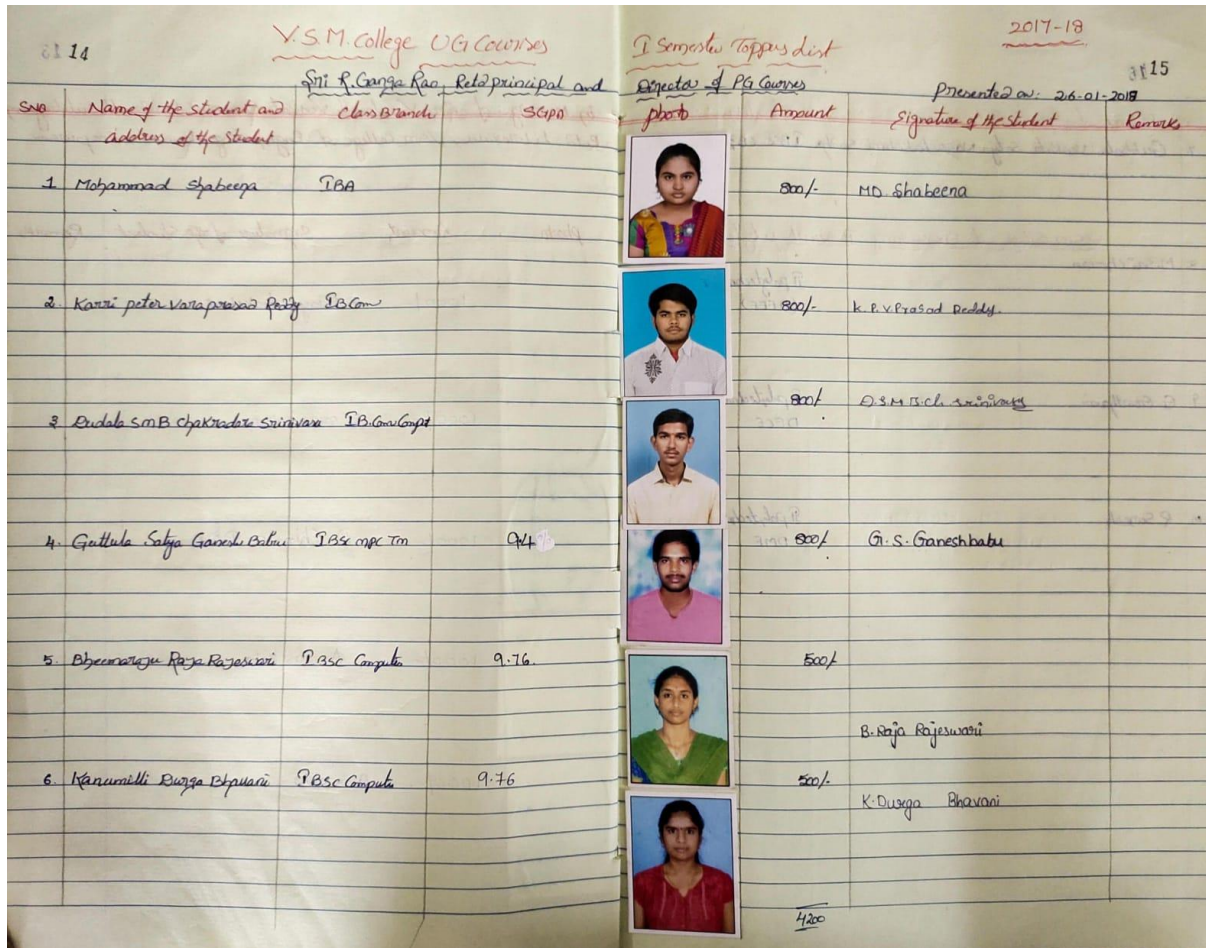 14
V.S.M. College UG Courses I Semester Toppers List 2017-18
15
Sri R. Ganga Rao, Retd principal and Director of PG Courses Presented on: 26-01-2018
SNo Name of the student and address of the student Class Branch SGPA photo Amount Signature of the student Remarks
1 Mohammad Shabeena I BA 800/- MD. Shabeena
2. Karri peter Varaprasad Reddy I B Com 800/- K. P. V. Prasad Reddy.
3 Dudala SMB Chakradara Srinivasa I B.Com Compt 800/- D.S.M.B.Ch. Srinivas
4. Guttula Satya Ganesh Babu I BSc mpc Tm 9.4 800/- G. S. Ganeshbabu
5. Bheemaraju Raja Rajeswari I BSc Computer 9.76. 500/-
B. Raja Rajeswari
6. Kanumilli Durga Bhavani I BSc Computer 9.76 500/-
K. Durga Bhavani
4200